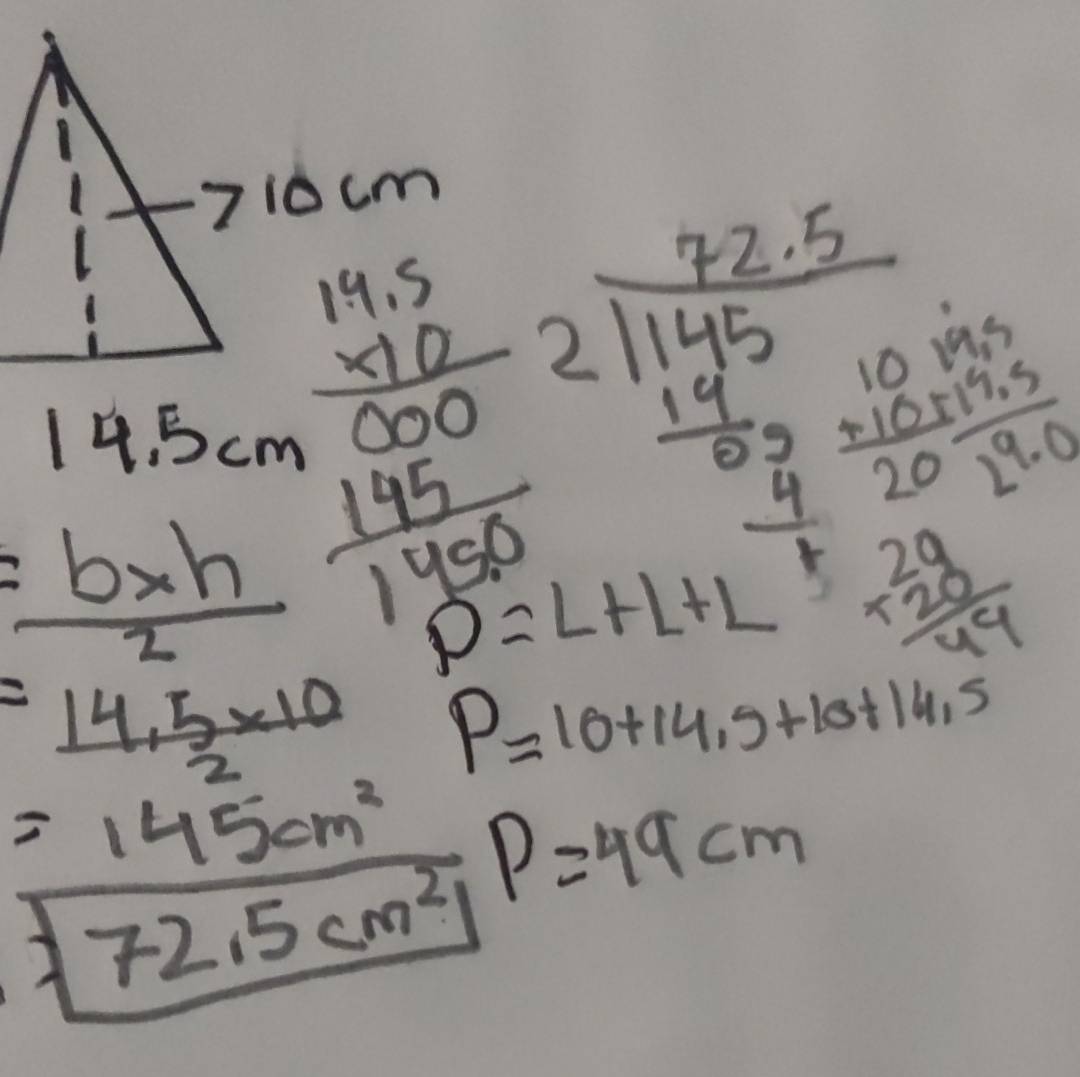 →10 cm
14.5cm
14.5
×10
000
145
145.0
72.5
2 145
14
05
4
1
10
+10
20
14.5
+14.5
29.0
29
+20
49
= b×h
2
= 14.5×10
2
= 145cm²
= 72.5 cm²
P=L+L+L
P=10+14.5+10+14.5
P=49 cm